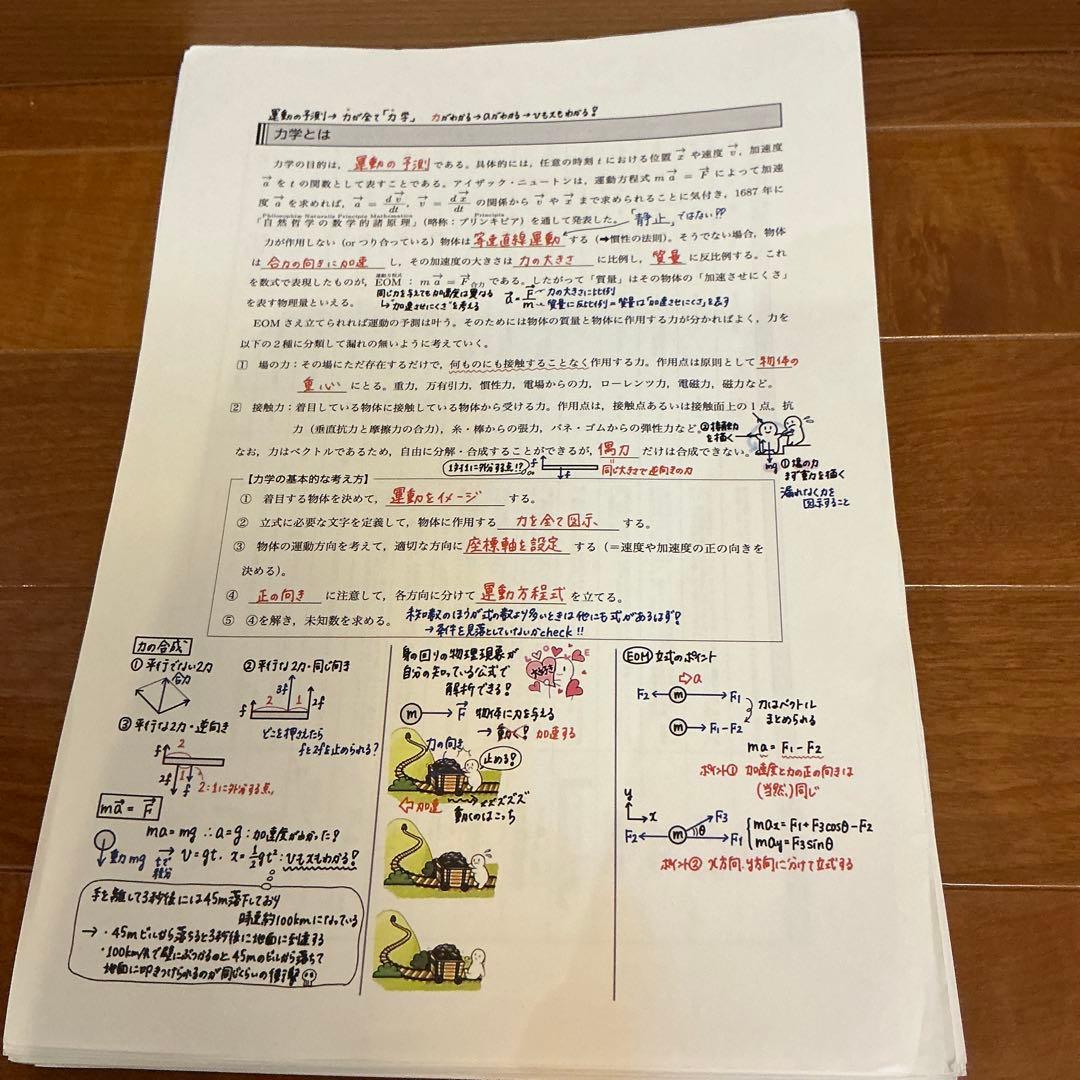 運動の予測→力が全て「力学」 力がわかる→aがわかる→vもxもわかる!
力学とは
力学の目的は，運動の予測である。具体的には，任意の時刻 t における位置 x や速度 v，加速度
a を t の関数として表すことである。アイザック・ニュートンは，運動方程式 ma = F によって加速
度 a を求めれば，a = dv/dt，v = dx/dt の関係から v や x まで求められることに気付き，1687 年に
Philosophiæ Naturalis Principia Mathematica Principia
「自然哲学の数学的諸原理」（略称：プリンキピア）を通して発表した。 「静止」ではない??
力が作用しない (or つり合っている) 物体は等速直線運動する（➡慣性の法則）。そうでない場合，物体
は 合力の向きに加速 し，その加速度の大きさは 力の大きさ に比例し，質量 に反比例する。これ
運動方程式
を数式で表現したものが，EOM：ma = F合力 である。したがって「質量」はその物体の「加速させにくさ」
を表す物理量といえる。
同じ力を与えても加速度は異なる
↳"加速させにくさ"を考える
a = F/m ←力の大きさに比例 ←質量に反比例=質量は"加速させにくさ"を表す
EOM さえ立てられれば運動の予測は叶う。そのためには物体の質量と物体に作用する力が分かればよく，力を
以下の２種に分類して漏れの無いように考えていく。
① 場の力：その場にただ存在するだけで，何ものにも接触することなく作用する力。作用点は原則として 物体の
重心 にとる。重力，万有引力，慣性力，電場からの力，ローレンツ力，電磁力，磁力など。
② 接触力：着目している物体に接触している物体から受ける力。作用点は，接触点あるいは接触面上の１点。抗
力（垂直抗力と摩擦力の合力），糸・棒からの張力，バネ・ゴムからの弾性力など。
②接触力
を描く
なお，力はベクトルであるため，自由に分解・合成することができるが，偶力 だけは合成できない。
1対1に外分する点!?
f
f
同じ大きさで逆向きの力
mg ①場の力
まず重力を描く
漏れなく力を
図示すること
【力学の基本的な考え方】
① 着目する物体を決めて，運動をイメージ する。
② 立式に必要な文字を定義して，物体に作用する 力を全て図示 する。
③ 物体の運動方向を考えて，適切な方向に座標軸を設定 する（＝速度や加速度の正の向きを
決める）。
④ 正の向き に注意して，各方向に分けて 運動方程式 を立てる。
⑤ ④を解き，未知数を求める。 未知数のほうが式の数より多いときは他にも式があるはず!
→条件を見落としていないかcheck!!
力の合成
①平行でない2力
合力
②平行な2力・同じ向き
3f
f 2 1 2f
どこを押さえたら
fと2fを止められる?
③平行な2力・逆向き
f 2
2f 1 f
2:1に外分する点。
ma = F
ma=mg ∴a=g:加速度が分かった!
mg → v=gt. x=1/2gt²:vもxもわかる!
tで
積分
手を離して3秒後には45m落下しており
時速約100kmになっている
→・45mビルから落ちると3秒後に地面に到達する
・100km/hで壁にぶつかるのと45mのビルから落ちて
地面に叩きつけられるのが同じくらいの衝撃
身の回りの物理現象が
自分の知っている公式で
解析できる!
大好き
m → F 物体に力を与える
→動く! 加速する
力の向き
止める!
加速
ズズズズ
動くのはこっち
EOM 立式のポイント
⇨a
F2 ← m → F1
m → F1-F2
力はベクトル
まとめられる
ma = F1-F2
ポイント① 加速度と力の正の向きは
(当然)同じ
y
x
F2 ← m θ F3
F1
max=F1+F3cosθ-F2
may=F3sinθ
ポイント② x方向,y方向に分けて立式する